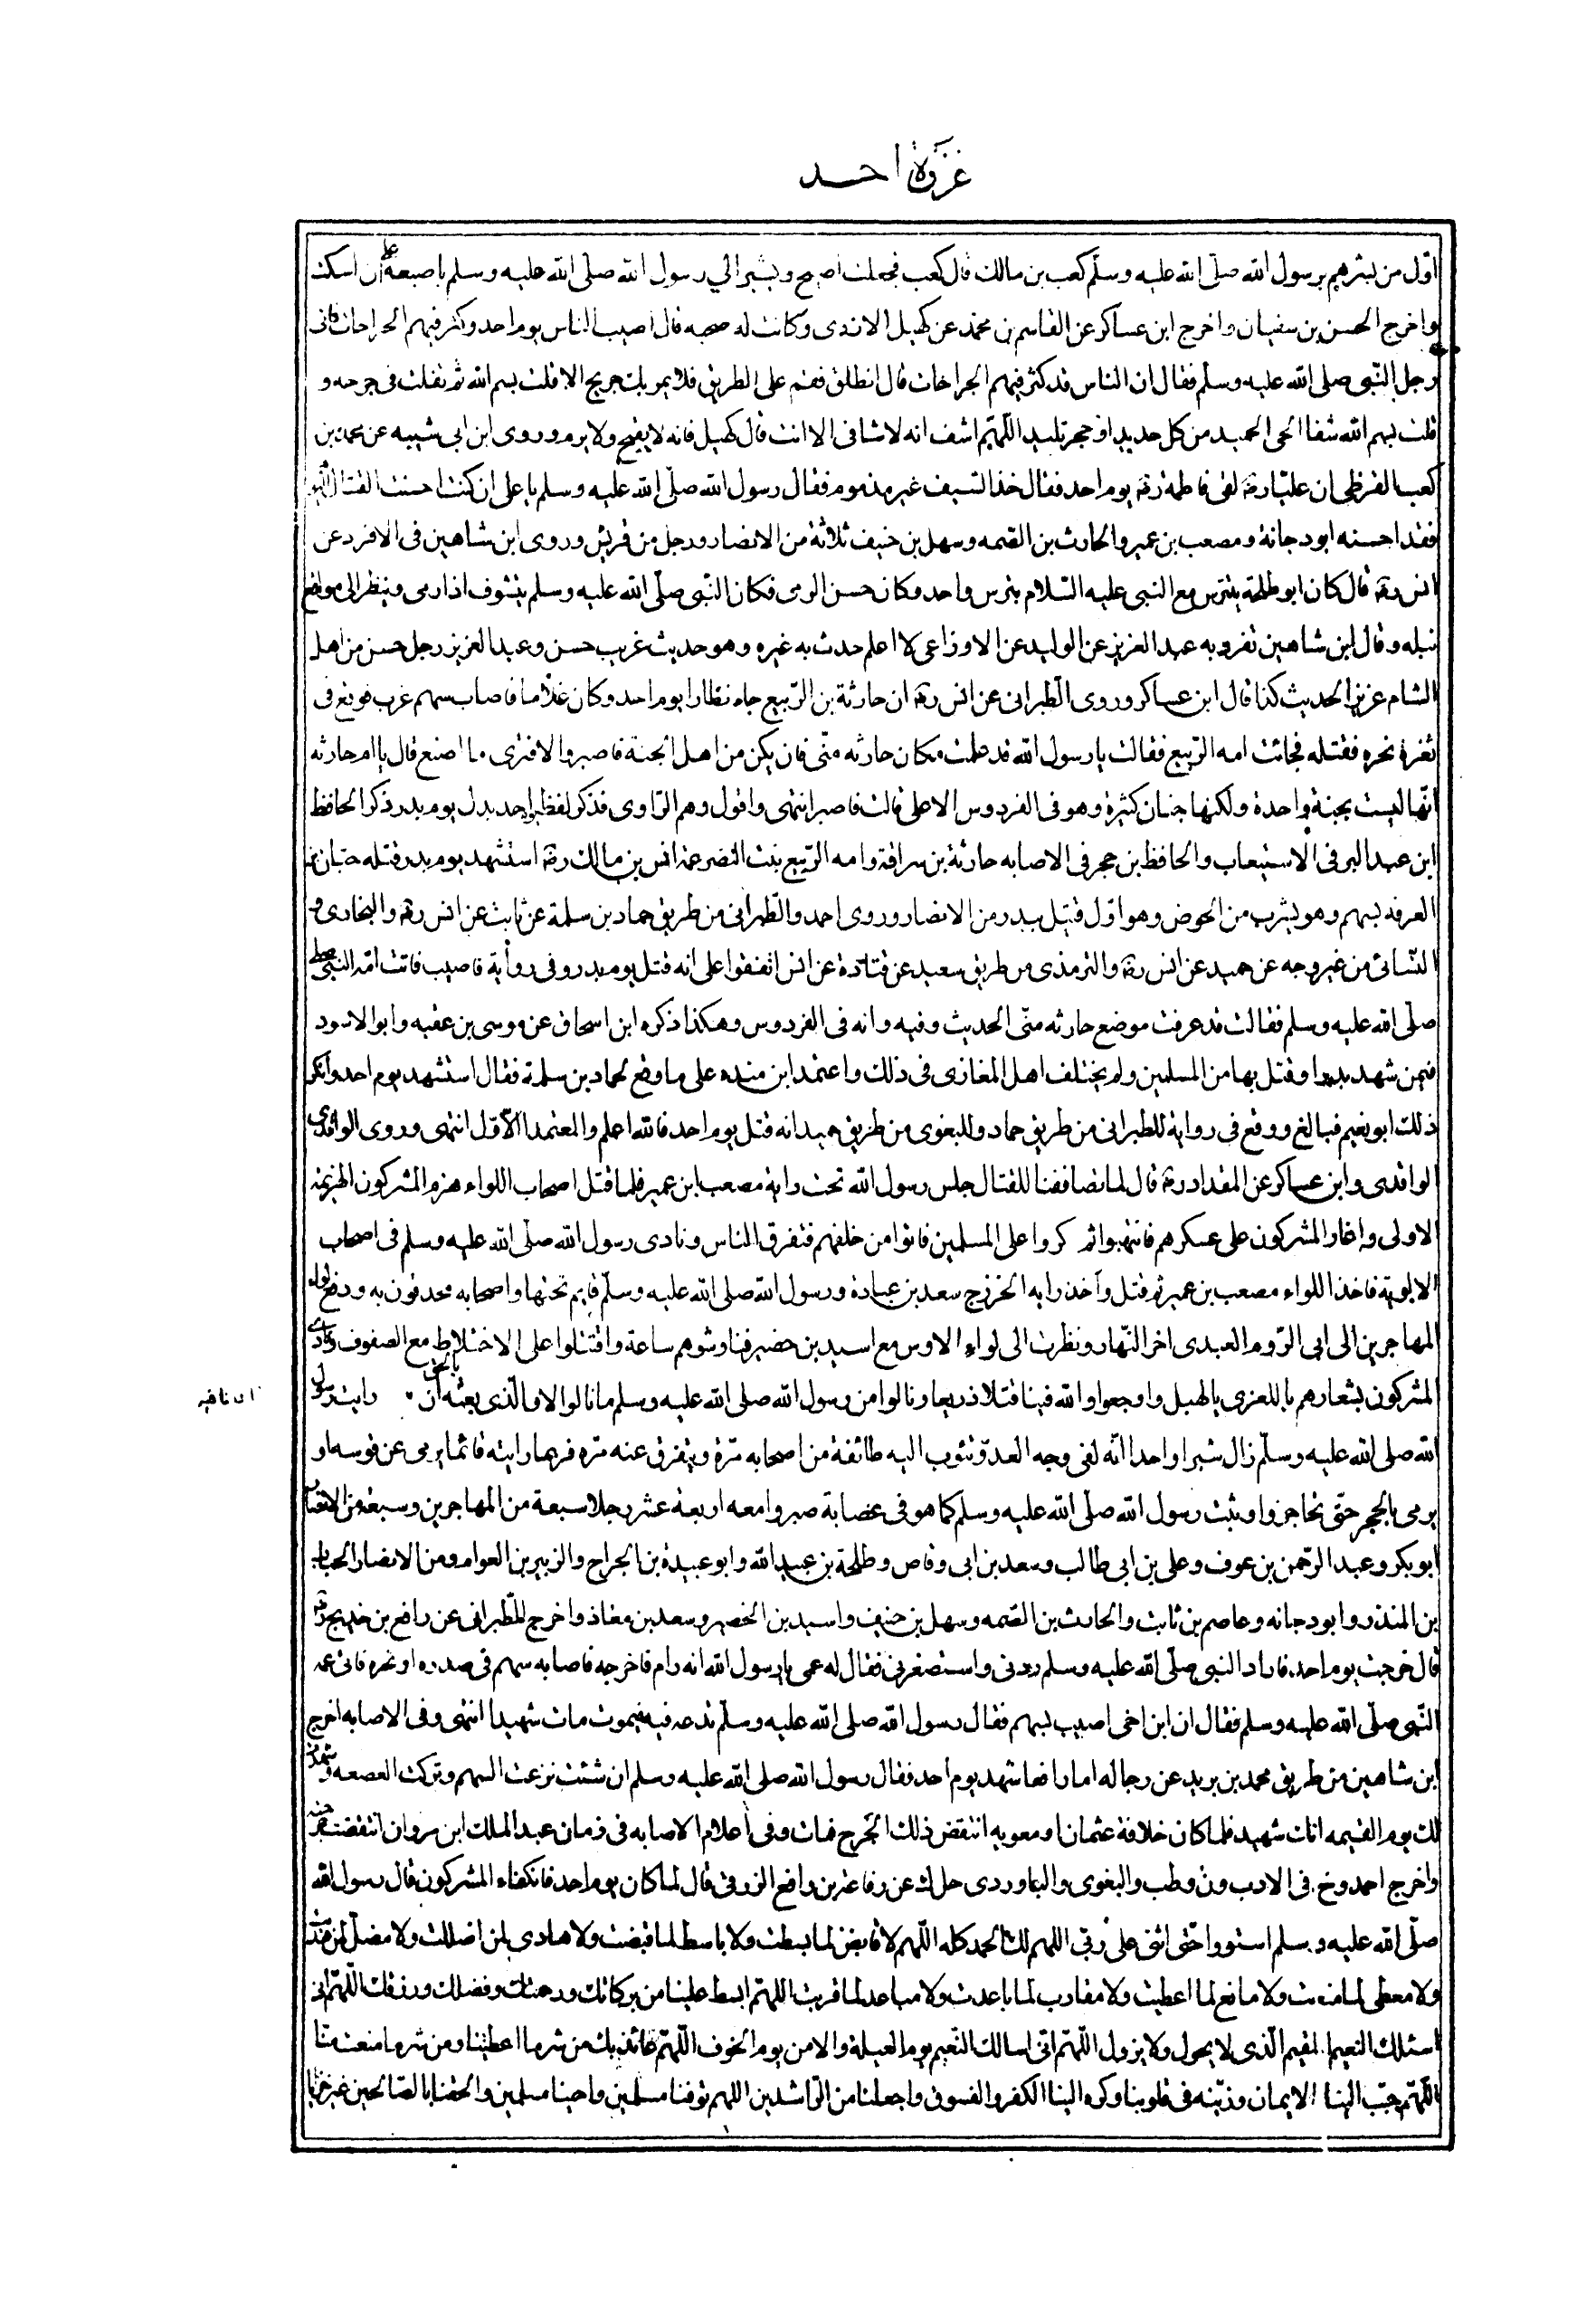 غزوة احد
اوّل من بشرهم برسول الله صلّى الله عليه وسلّم كعب بن مالك قال كعب فجعلت اصيح ويشير الي رسول الله صلّى الله عليه وسلم باصبعه ان اسكت
واخرج الحسن بن سفيان واخرج ابن عساكر عن القاسم بن محمد عن كهيل الازدى وكانت له صحبه قال اصيب الناس يوم احد وكثر فيهم الجراحات فاتى
رجل النّبى صلى الله عليه وسلم فقال ان الناس قد كثر فيهم الجراحات قال انطلق فقم على الطريق فلا يمر بك جريح الا قلت بسم الله ثم تفلت فى جرحه و
قلت بسم الله شفا الحى الحميد من كل حديد او حجر تليد اللّهمّ اشف انه لا شافى الا انت قال كهيل فانه لا يقيح ولا يرم وروى ابن ابى شيبه عن محمد بن
كعب القرظى ان عليّا رضه لقى فاطمة رضه يوم احد فقال خذ السّيف غير مذموم فقال رسول الله صلّى الله عليه وسلم يا على ان كنت احسنت القتال اليوم
فقد احسنه ابو دجانة ومصعب بن عمير والحارث بن القمه وسهل بن حنيف ثلاثة من الانصار ورجل من قريش وروى ابن شاهين فى الافرد عن
انس رضه قال كان ابو طلحة يتترس مع النبى عليه السّلام بترس واحد وكان حسن الرمى فكان النّبى صلّى الله عليه وسلم يتشوف اذا رمى وينظر الى موقع
نبله وقال ابن شاهين تفرد به عبد العزيز عن الوليد عن الاوزاعى لا اعلم حدث به غيره وهو حديث غريب حسن وعبد العزيز رجل حسن من اهل
الشام عزيز الحديث كذا قال ابن عساكر وروى الطبرانى عن انس رضه ان حارثة بن الرّبيع جاء نظارا يوم احد وكان غلاما فاصاب سهم غرب فوقع فى
ثغرة نحره فقتله فجائت امه الرّبيع فقالت يا رسول الله قد علمت مكان حارثه منّى فان يكن من اهل الجنة فاصبر والا فترى ما اصنع قال يا ام حارثه
انّها ليست بجنة واحدة ولكنها جنان كثيرة وهو فى الفردوس الاعلى قالت فاصبر انتهى واقول وهم الرّاوى فذكر لفظ احد بدل يوم بدر ذكر الحافظ
ابن عبد البر فى الاستيعاب والحافظ بن حجر فى الاصابه حارثة بن سراقة وامه الرّبيع بنت النضر عمة انس بن مالك رضه استشهد يوم بدر قتله حبّان بن
العرفه بسهم وهو يشرب من الحوض وهو اوّل قتيل ببدر من الانصار وروى احمد والطّبرانى من طريق حماد بن سلمة عن ثابث عن انس رضه والبخارى و
النّسائى من غير وجه عن حميد عن انس رضه والترمذى من طريق سعيد عن قتادة عن انس اتفقوا على انه قتل يوم بدر وفى رواية فاصيب فاتت امّه النبى
صلّى الله عليه وسلم فقالت قد عرفت موضع حارثه منّى الحديث وفيه وانه فى الفردوس وهكذا ذكره ابن اسحاق عن موسى بن عقبه وابو الاسود
فيمن شهد بدرا وقتل بها من المسلمين ولم يختلف اهل المغازى فى ذلك واعتمد ابن منده على ما وقع لحماد بن سلمة فقال استشهد يوم احد وانكر
ذلك ابو نعيم فبالغ ووقع فى رواية للطبرانى من طريق حماد وللبغوى من طريق حميد انه قتل يوم احد فالله اعلم والمعتمد الاوّل انتهى وروى الواقدى
الواقدى وابن عساكر عن المقداد رضه قال لما تصاففنا للقتال جلس رسول الله تحت راية مصعب ابن عمير فلما قتل اصحاب اللواء هزم المشركون الهزيمة
الاولى واغار المشركون على عسكرهم فانتهبوا ثم كروا على المسلمين فاتوا من خلفهم فتفرق الناس ونادى رسول الله صلّى الله عليه وسلم فى اصحاب
الالوية فاخذ اللواء مصعب بن عمير ثم قتل وأخذ راية الخزرج سعد بن عبادة ورسول الله صلى الله عليه وسلّم قايم تحتها واصحابه محدقون به ودفع لواء
المهاجرين الى ابى الرّوم العبدى اخر النّهار ونظرت الى لواء الاوس مع اسيد بن حضير فناوشوهم ساعة واقتتلوا على الاختلاط مع الصفوف ونادى
المشركون بشعارهم بالعزى يا لهبل واوجعوا والله فينا قتلا ذريعا ونالوا من رسول الله صلى الله عليه وسلم ما نالوا لا والّذى بعثه بالحق ان رايت رسول
الله صلى الله عليه وسلّم زال شبرا واحدا انّه لفى وجه العدوّ تثوب اليه طائفة من اصحابه مرّة ويتفرق عنه مرّه فربما رايته قائما يرمى عن قوسه او
يرمى بالحجر حتّى تحاجزوا وثبت رسول الله صلّى الله عليه وسلم كما هو فى عصابة صبروا معه اربعة عشر رجلا سبعة من المهاجرين وسبعة من الانصار
ابو بكر وعبد الرّحمن بن عوف وعلى بن ابى طالب وسعد بن ابى وقاص وطلحة بن عبيد الله وابو عبيدة بن الجراح والزبير بن العوام ومن الانصار الحباب
بن المنذر وابو دجانه وعاصم بن ثابت والحارث بن القمه وسهل بن حنيف واسيد بن الحضير وسعد بن معاذ واخرج الطّبرانى عن رافع بن خديج رضه
قال خرجت يوم احد فاراد النبى صلّى الله عليه وسلم ردنى واستصغرنى فقال له عمى يا رسول الله انه رام فاخرجه فاصابه سهم فى صدره او نحره فاتى عمه
النّبى صلّى الله عليه وسلم فقال ان ابن اخى اصيب بسهم فقال رسول الله صلى الله عليه وسلّم تدعه فيه فيموت مات شهيدا انتهى وفى الاصابه اخرج
ابن شاهين من طريق محمد بن يزيد عن رجاله اما رافعا شهد يوم احد فقال رسول الله صلى الله عليه وسلم ان شئت نزعت السهم وتركت القصعه وشهدت
لك يوم القيمه انك شهيد فلما كان خلافة عثمان او معويه انتقض ذلك الجرح فمات وفى اعلام الاصابه فى زمان عبد الملك ابن مروان انتقضت
واخرج احمد وخ فى الادب ون وطب والبغوى والباوردى حل ك عن رفاعة بن رافع الزرقى قال لما كان يوم احد فانكفاء المشركون قال رسول الله
صلّى الله عليه وسلم استووا حتّى اثنى على ربّى اللهم لك الحمد كله اللّهم لا قابض لما بسطت ولا باسط لما قبضت ولا هادى لمن اضللت ولا مضلّ لمن هديت
ولا معطى لما منعت ولا مانع لما اعطيت ولا مقارب لما باعدت ولا مباعد لما قربت اللهمّ ابسط علينا من بركاتك ورحمتك وفضلك ورزقك اللّهمّ انى
اسئلك النعيم المقيم الّذى لا يحول ولا يزول اللّهمّ انّى اسالك النّعيم يوم العيلة والامن يوم الخوف اللّهمّ عائذ بك من شر ما اعطيتنا ومن شر ما منعت منّا
اللّهمّ حبّب الينا الايمان وزيّنه فى قلوبنا وكره الينا الكفر والفسوق واجعلنا من الرّاشدين اللهم توفنا مسلمين واحينا مسلمين والحقنا بالصّالحين غير خزايا
ان نافيه